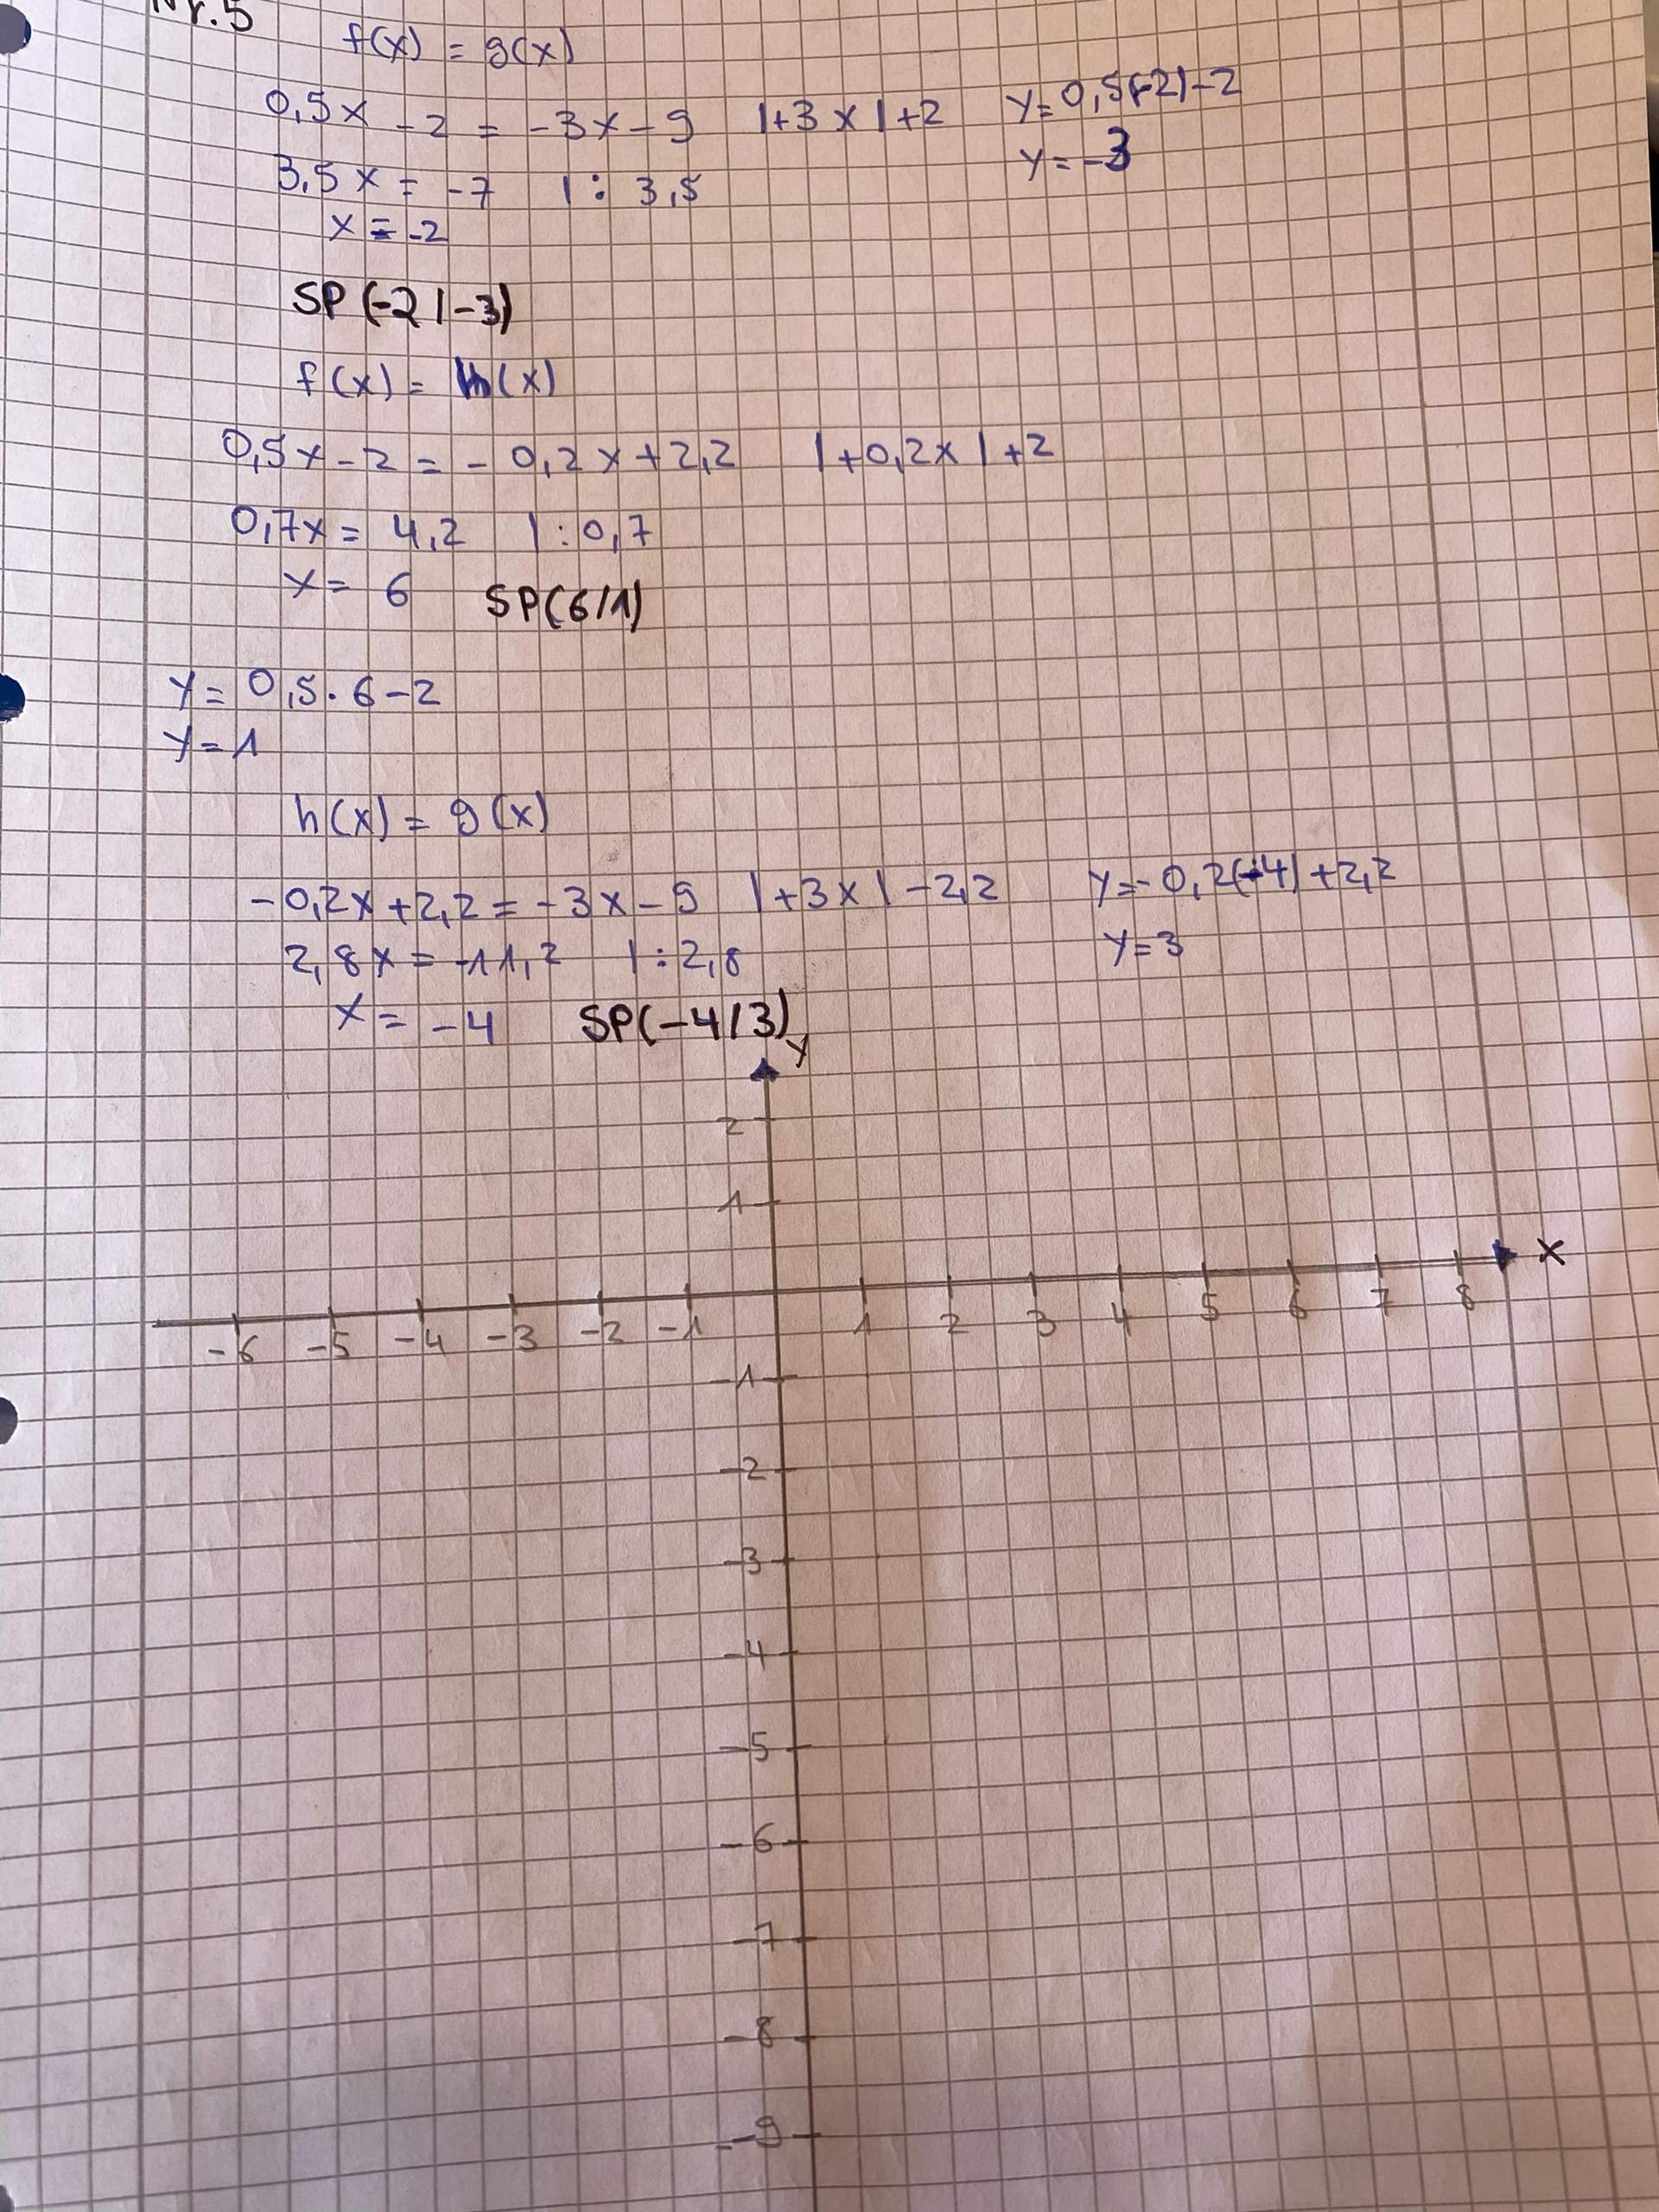 Nr. 5
f(x) = g(x)
0,5x - 2 = -3x - 9 |+3x |+2 y = 0,5(-2)-2
y = -3
3,5x = -7 |: 3,5
x = -2
SP(-2|-3)
f(x) = h(x)
0,5x - 2 = - 0,2x + 2,2 |+0,2x |+2
0,7x = 4,2 |:0,7
x = 6 SP(6/1)
y = 0,5 · 6 - 2
y = 1
h(x) = g(x)
-0,2x + 2,2 = -3x - 9 |+3x |-2,2 y = -0,2(-4) + 2,2
2,8x = -11,2 |:2,8 y = 3
x = -4 SP(-4/3)
y
2
1
x
-6 -5 -4 -3 -2 -1 1 2 3 4 5 6 7 8
-1
-2
-3
-4
-5
-6
-7
-8
-9